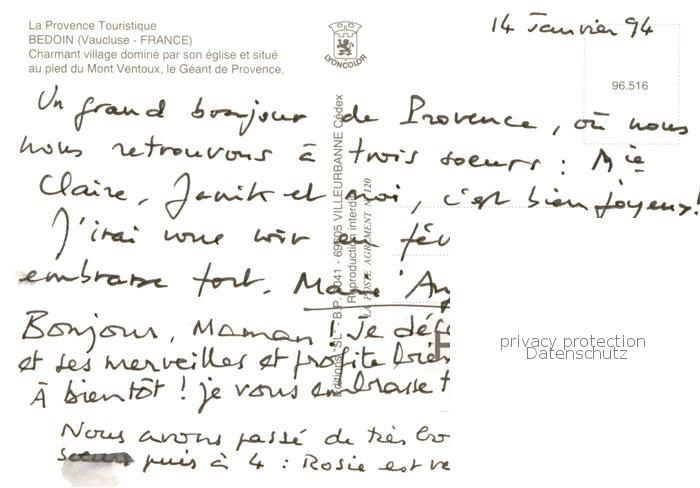 La Provence Touristique
BEDOIN (Vaucluse - FRANCE)
Charmant village dominé par son église et situé
au pied du Mont Ventoux, le Géant de Provence.
LYONCOLOR
14 Janvier 94
96.516
Un grand bonjour de Provence, où nous
nous retrouvons à trois soeurs : Mie
Claire, Janik et moi, c'est bien joyeux!
J'irai vous voir en fév
embrasse fort. Marie An
Bonjour, Maman! Je déc
et ses merveilles et profite bien
À bientôt ! je vous embrasse t
Nous avons passé de très bo
soeurs puis à 4 : Rosie est ve
Editions "SL" - B.P. 2041 - 69605 VILLEURBANNE Cédex
Reproduction interdite
LA POSTE AGREMENT N° 120
privacy protection
Datenschutz